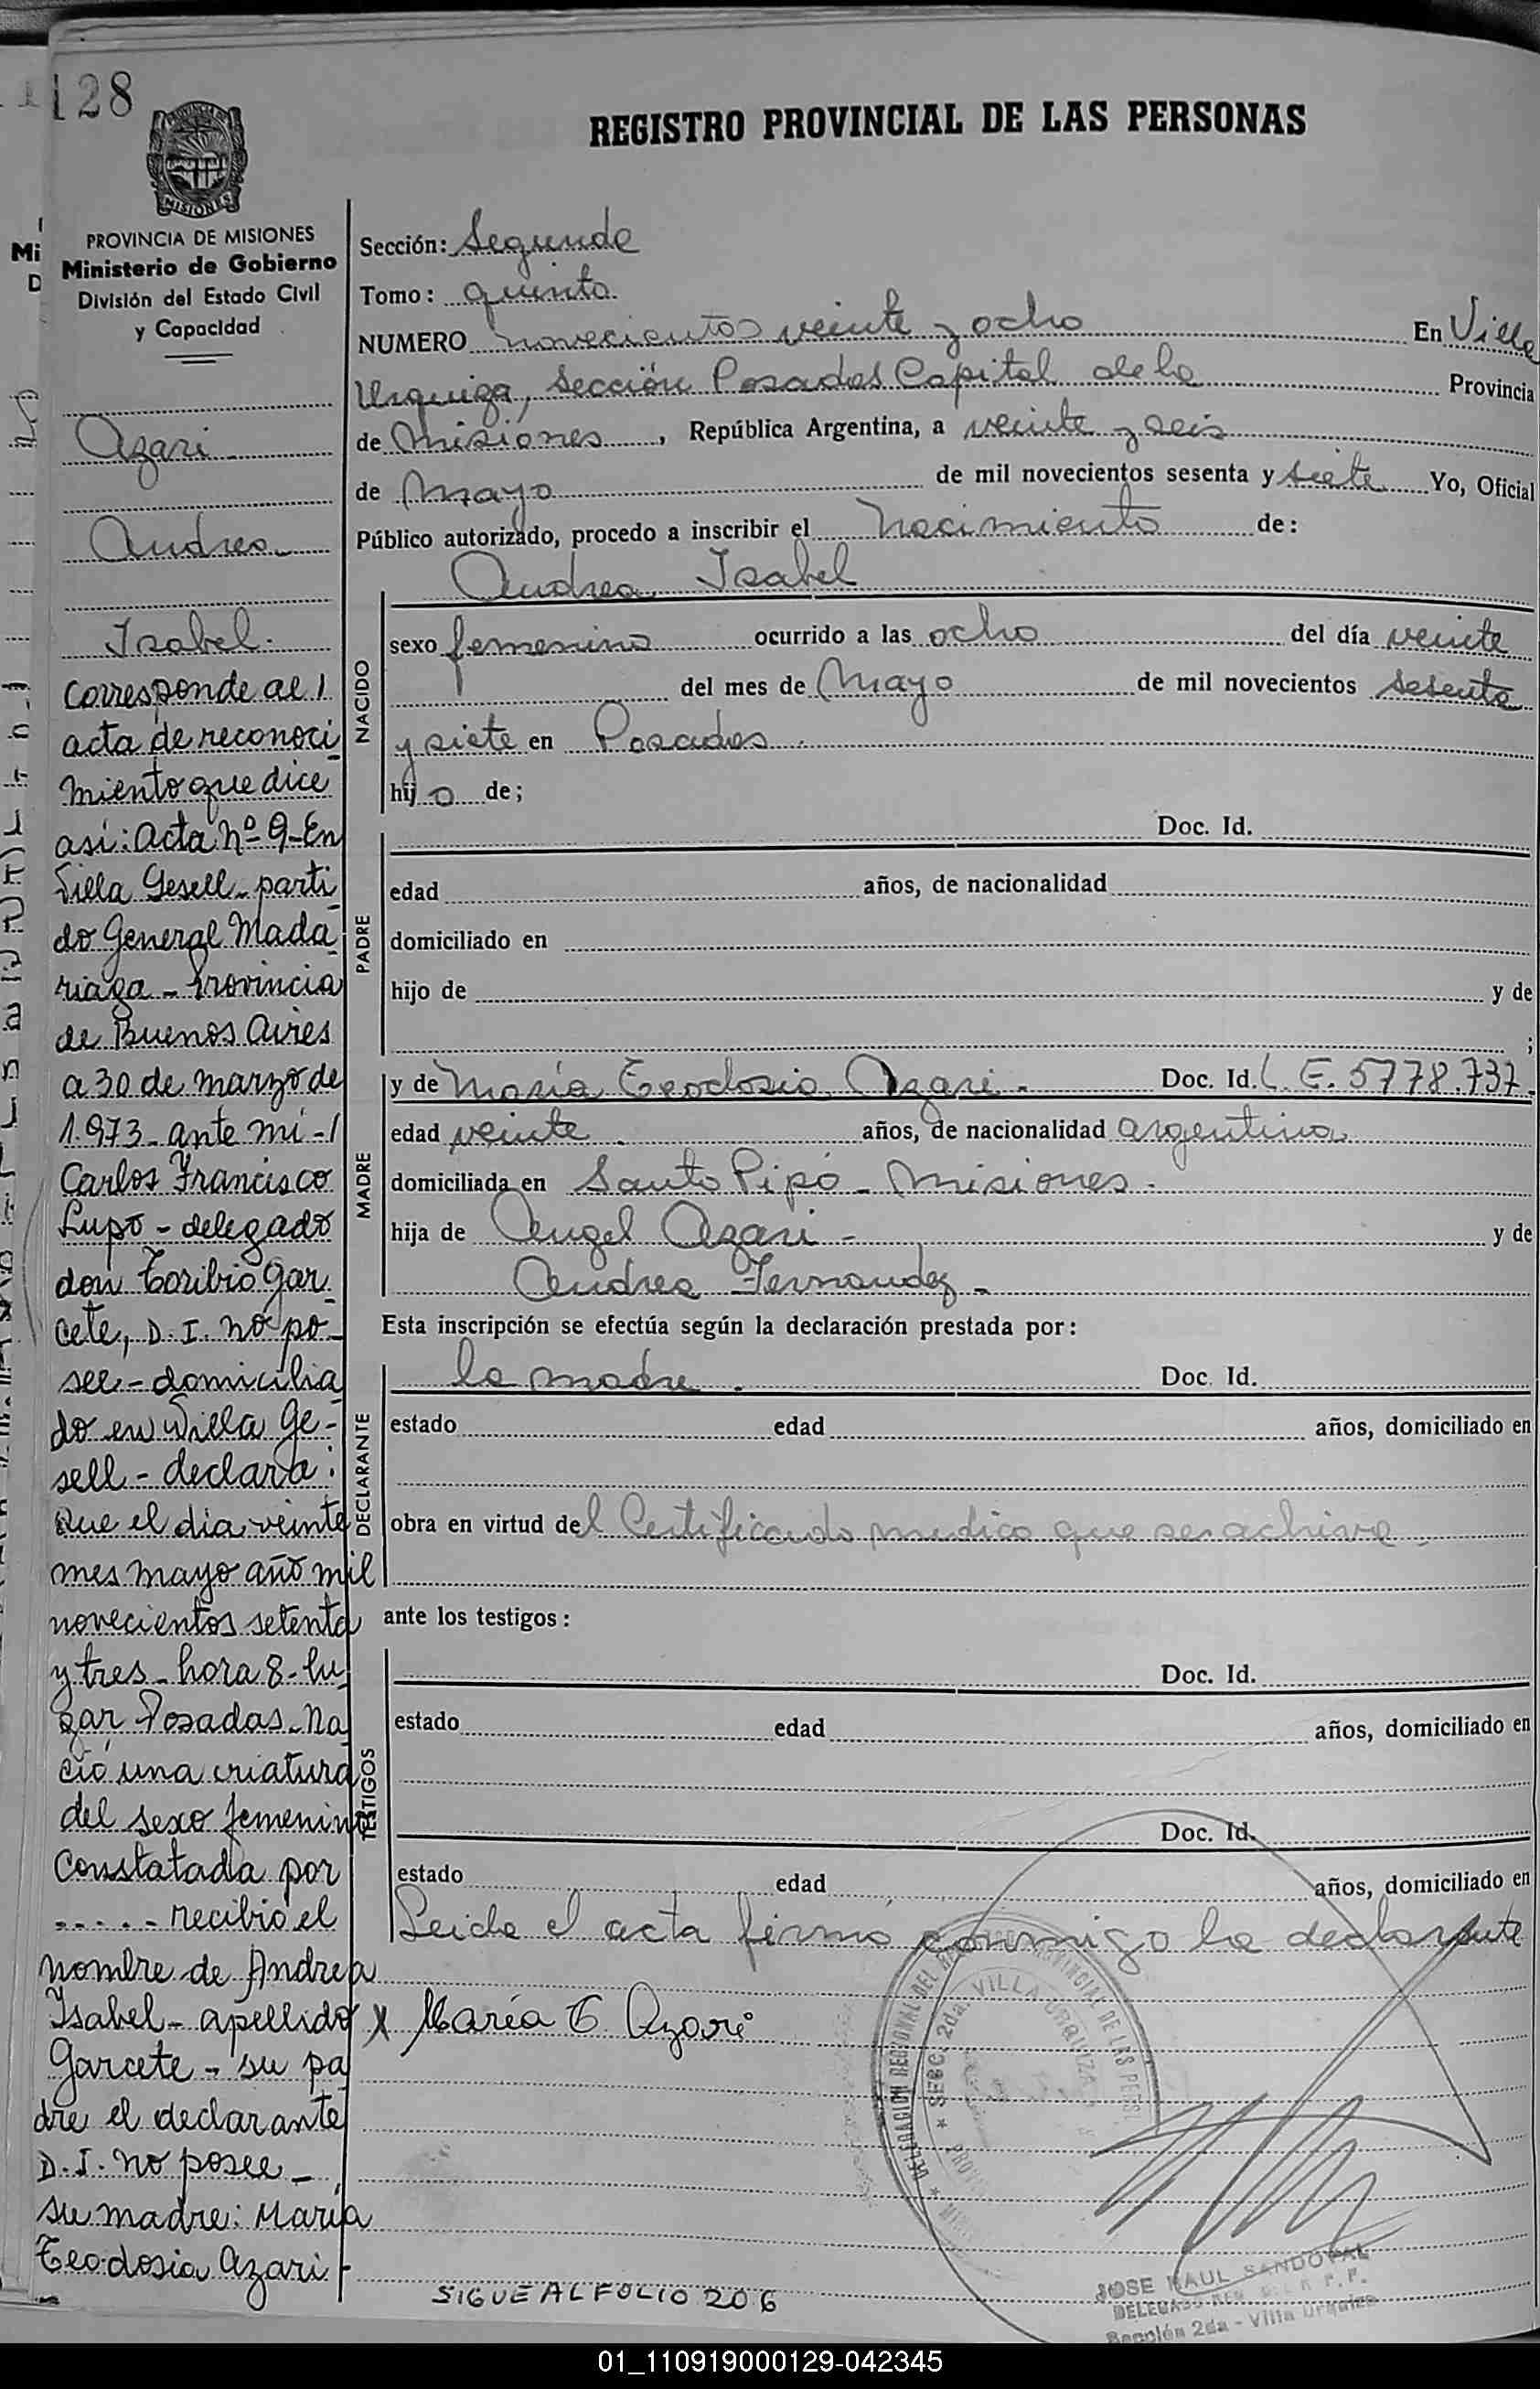 128
REGISTRO PROVINCIAL DE LAS PERSONAS
MISIONES
PROVINCIA DE MISIONES
Ministerio de Gobierno
División del Estado Civil
y Capacidad
Azari
Andrea
Isabel.
Corresponde al
acta de reconoci
miento que dice
así: acta Nº 9-En
Villa Gesell-parti
do General Mada
riaga-Provincia
de Buenos Aires
a 30 de marzo de
1.973-ante mí-
Carlos Francisco
Lupo-delegado
don Toribio Gar
cete, D.I. no po-
see-domicilia
do en Villa Ge-
sell-declara:
Que el día veinte
mes mayo año mil
novecientos setenta
y tres-hora 8-lu
gar Posadas-Na
ció una criatura
del sexo femenino
Constatada por
.....-recibió el
nombre de Andrea
Isabel-apellido
Garcete-su pa
dre el declarante
D.I. no posee-
su madre: María
Teodosia Azari-
Sección: Segunda
Tomo: quinto
NUMERO novecientos veinte y ocho En Villa
Urquiza, Sección Posadas Capital de la Provincia
de Misiones, República Argentina, a veinte y seis
de Mayo de mil novecientos sesenta y siete Yo, Oficial
Público autorizado, procedo a inscribir el Nacimiento de:
Andrea Isabel
NACIDO
sexo femenino ocurrido a las ocho del día veinte
del mes de Mayo de mil novecientos sesenta
y siete en Posadas.
hijo de;
PADRE
Doc. Id.
edad años, de nacionalidad
domiciliado en
hijo de y de
;
MADRE
y de María Teodosia Azari. Doc. Id. L.E. 5778.737
edad veinte. años, de nacionalidad argentina
domiciliada en Santo Pipó-Misiones.
hija de Angel Azari- y de
Andrea Fernandez-
Esta inscripción se efectúa según la declaración prestada por:
DECLARANTE
la madre. Doc. Id.
estado edad años, domiciliado en
obra en virtud del Certificado medico que se achiva.
ante los testigos:
TESTIGOS
Doc. Id.
estado edad años, domiciliado en
Doc. Id.
estado edad años, domiciliado en
Leida el acta firmó conmigo la declarante
X María T Azari
SECC. 2da. VILLA URQUIZA
JOSE RAUL SANDOVAL
Sección 2da - Villa Urquiza
SIGUE AL FOLIO 206
01_110919000129-042345